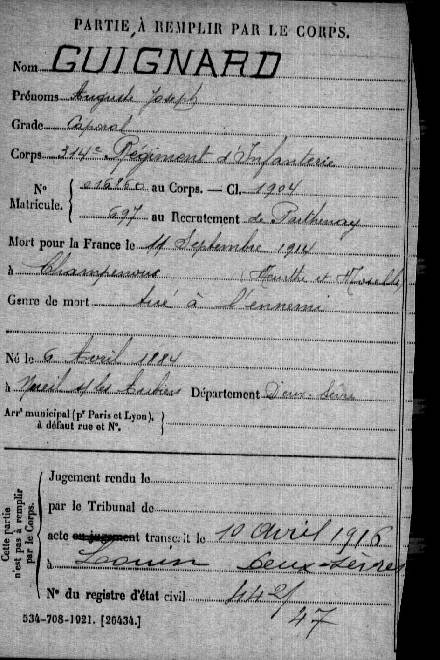 PARTIE À REMPLIR PAR LE CORPS.
Nom GUIGNARD
Prénoms Auguste Joseph
Grade Caporal
Corps 314e Régiment d'Infanterie
No Matricule. 016860 au Corps. — Cl. 1904
697 au Recrutement de Parthenay
Mort pour la France le 11 Septembre 1914
à Champenoux (Meurthe et Moselle)
Genre de mort tué à l'ennemi
Né le 6 Avril 1884
à s/ les Aubiers Département Deux-Sèvres
Arrt municipal (pr Paris et Lyon),
à défaut rue et No.
Cette partie
n'est pas à remplir
par le Corps.
Jugement rendu le
par le Tribunal de
acte ou jugement transcrit le 10 avril 1916
à Louin Deux-Sèvres
No du registre d'état civil
534-708-1921. [26434.]
47